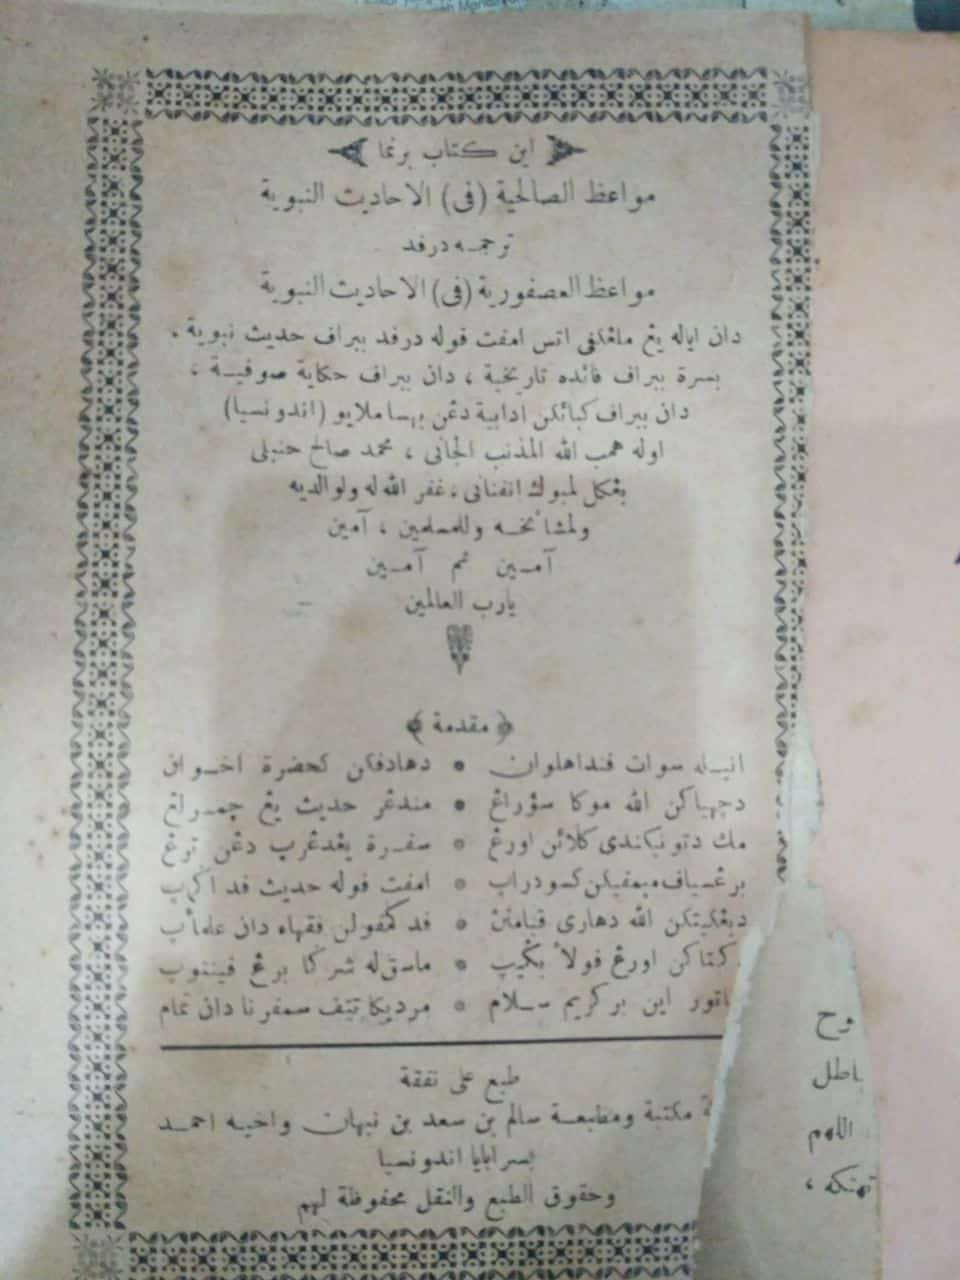 اين كتاب برنما
مواعظ الصالحية (فى) الاحاديث النبوية
ترجمه درفد
مواعظ العصفورية (فى) الاحاديث النبوية
دان اياله يڠ ملڠكفى اتس امفت فوله درفد ببراف حديث نبوية ،
بسرة ببراف فائده تاريخية ، دان ببراف حكاية صوفية ،
دان ببراف كبائكن ادابية دڠن بهسا ملايو (اندونسيا)
اوله همب الله المذنب الجانى ، محمد صالح حنبلى
بڠكل لمبوك انفنانى ، غفر الله له ولوالديه
ولمشائخه وللمسلمين ، آمين
آمين ثم آمين
يارب العالمين
﴿ مقدمة ﴾
انيله سوات فنداهلوان • دهادفكن كحضرة اخوان
دچهياكن الله موكا سؤراڠ • مندڠر حديث يڠ
مك كلائن اورڠ • سفرة دڠن
برڠسياف كسودراب • امفت فوله حديث فد
دبڠكيتكن الله دهارى قيامتن • فد كمفولن فقهاء دان علماء
كتاكن اورڠ فولأ • ماسق له شركا
اين بركريم سلام • مرديكا سمفرنا دان تمام
طبع على نفقة
مكتبة ومطبعة سالم بن سعد بن نبهان واخيه احمد
بسرابايا اندونسيا
وحقوق الطبع والنقل محفوظة لهم
وح
باطل
اللهم
تهتكه ،